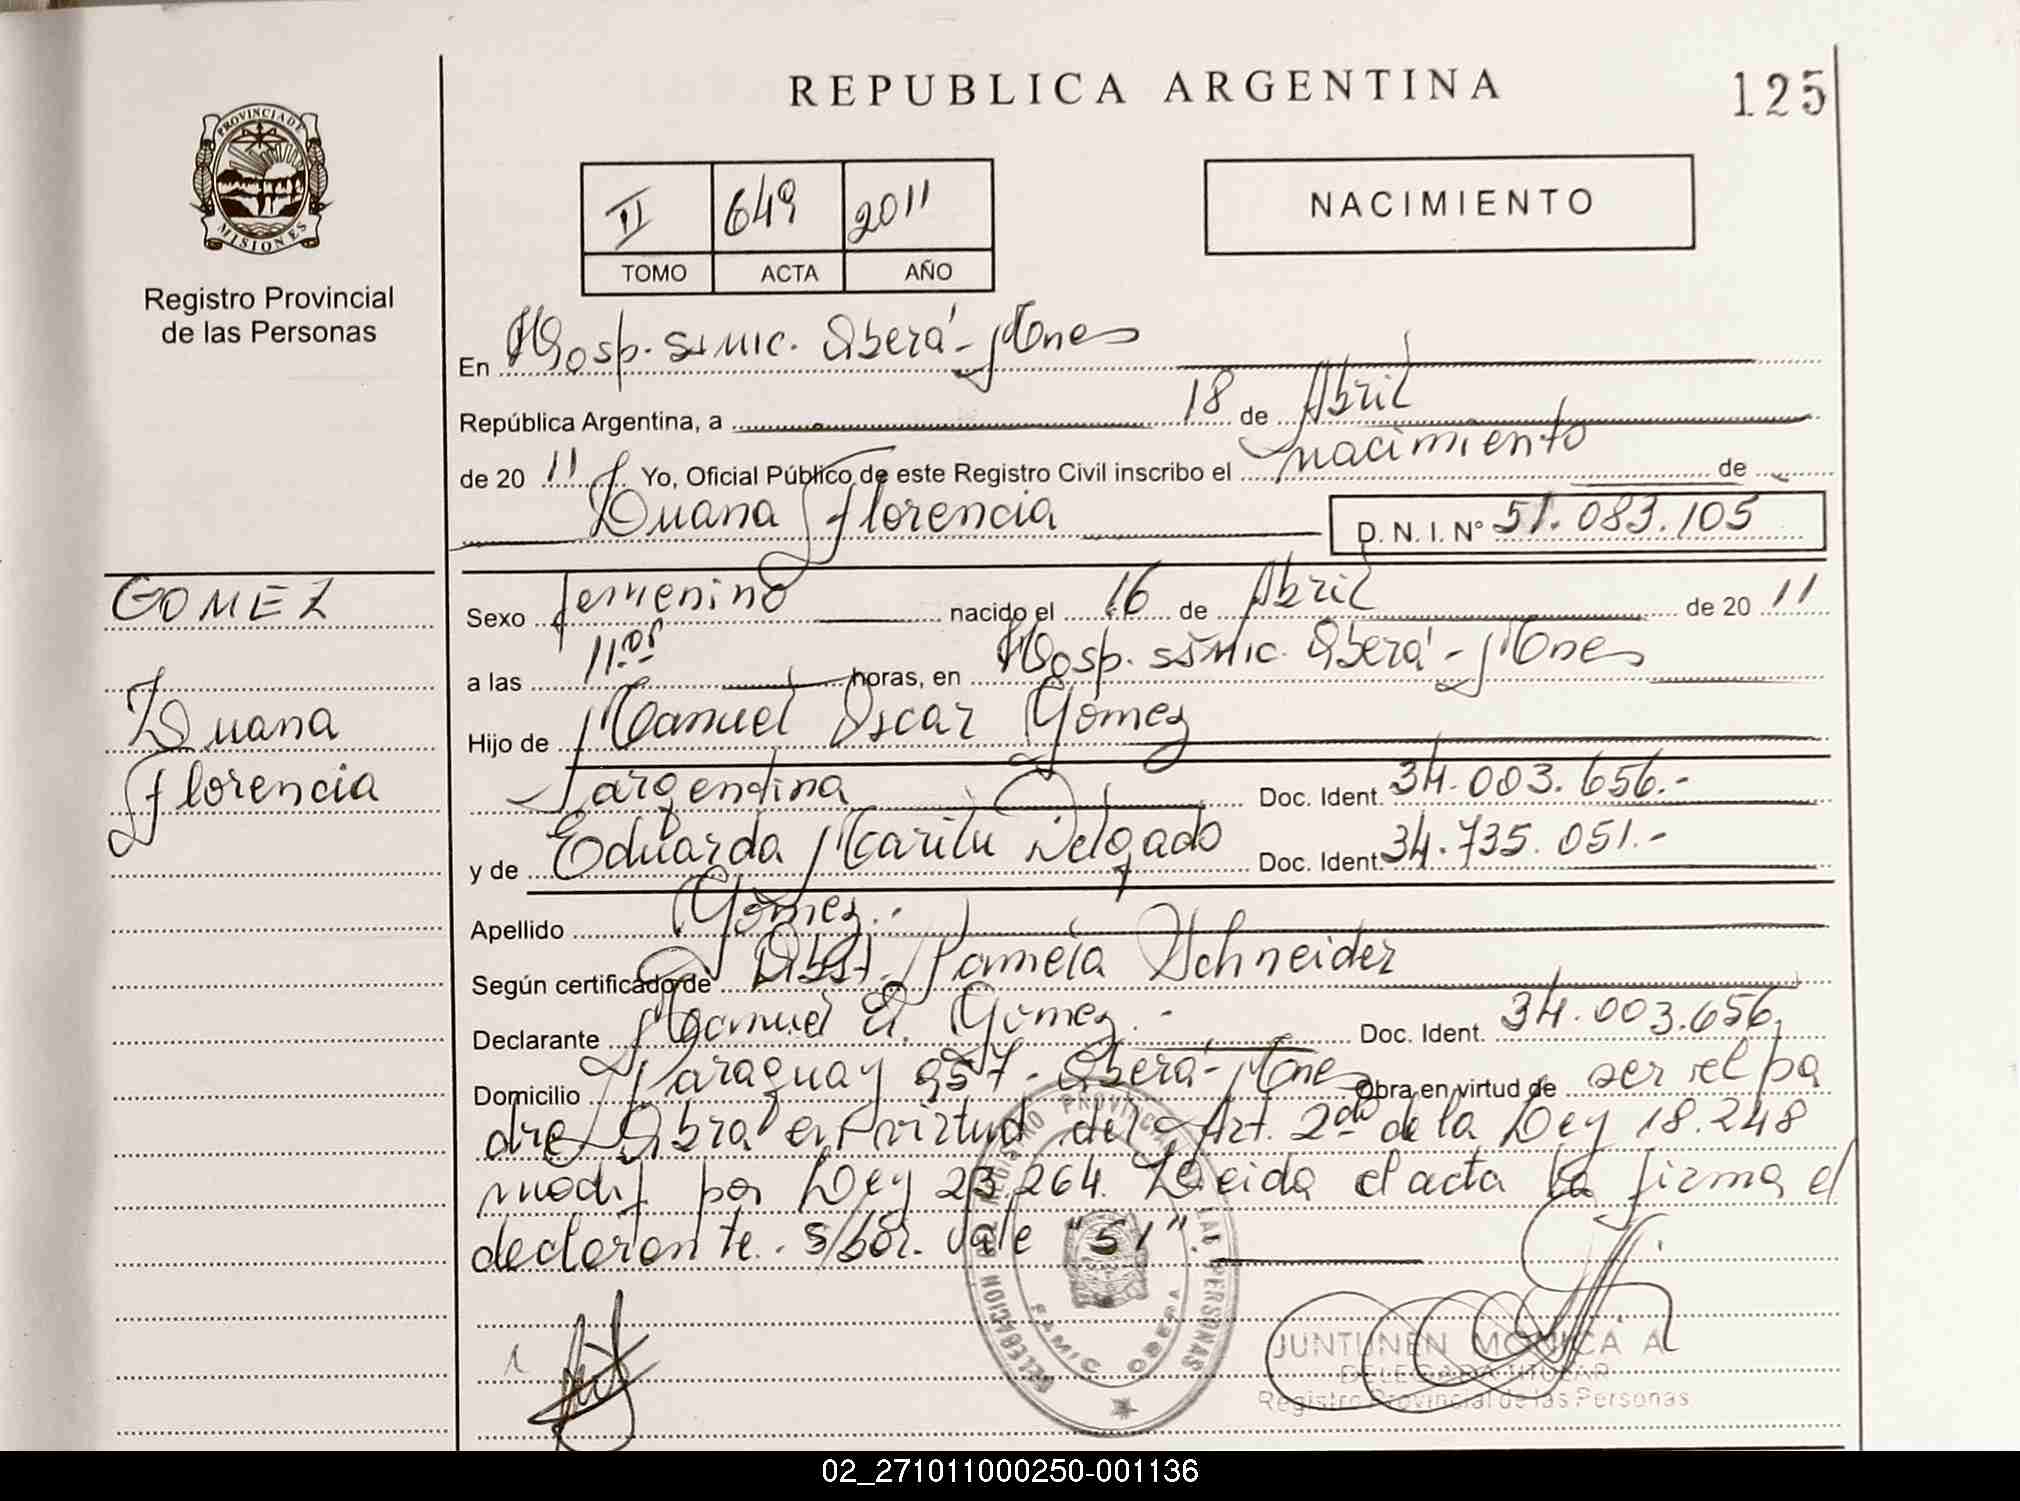 REPUBLICA ARGENTINA
125
PROVINCIA DE
MISIONES
Registro Provincial
de las Personas
II 649 2011
TOMO ACTA AÑO
NACIMIENTO
En Hosp. Samic. Oberá - Mnes
República Argentina, a 18 de Abril
de 20 11 Yo, Oficial Público de este Registro Civil inscribo el nacimiento de
Luana Florencia D. N. I. N° 51.083.105
GOMEZ
Luana
Florencia
Sexo femenino nacido el 16 de Abril de 20 11
a las 11:05 horas, en Hosp. Samic. Oberá - Mnes
Hijo de Manuel Oscar Gómez
argentina Doc. Ident. 34.003.656.-
y de Eduarda Marilu Delgado Doc. Ident. 34.735.051.-
Apellido Gómez.-
Según certificado de Obst. Pamela Schneider
Declarante Manuel O. Gómez.- Doc. Ident. 34.003.656,
Domicilio Paraguay 957 - Oberá - Mnes Obra en virtud de ser el pa
dre Obra en virtud del Art. 2do de la Ley 18.248
modif por Ley 23.264. Leida el acta la firma el
declarante. s/bor. vale "51".
DELEGACION REGISTRO PROVINCIAL DE LAS PERSONAS
SAMIC. OBERA
JUNTUNEN MONICA A
DELEGADA TITULAR
Registro Provincial de las Personas
02_271011000250-001136